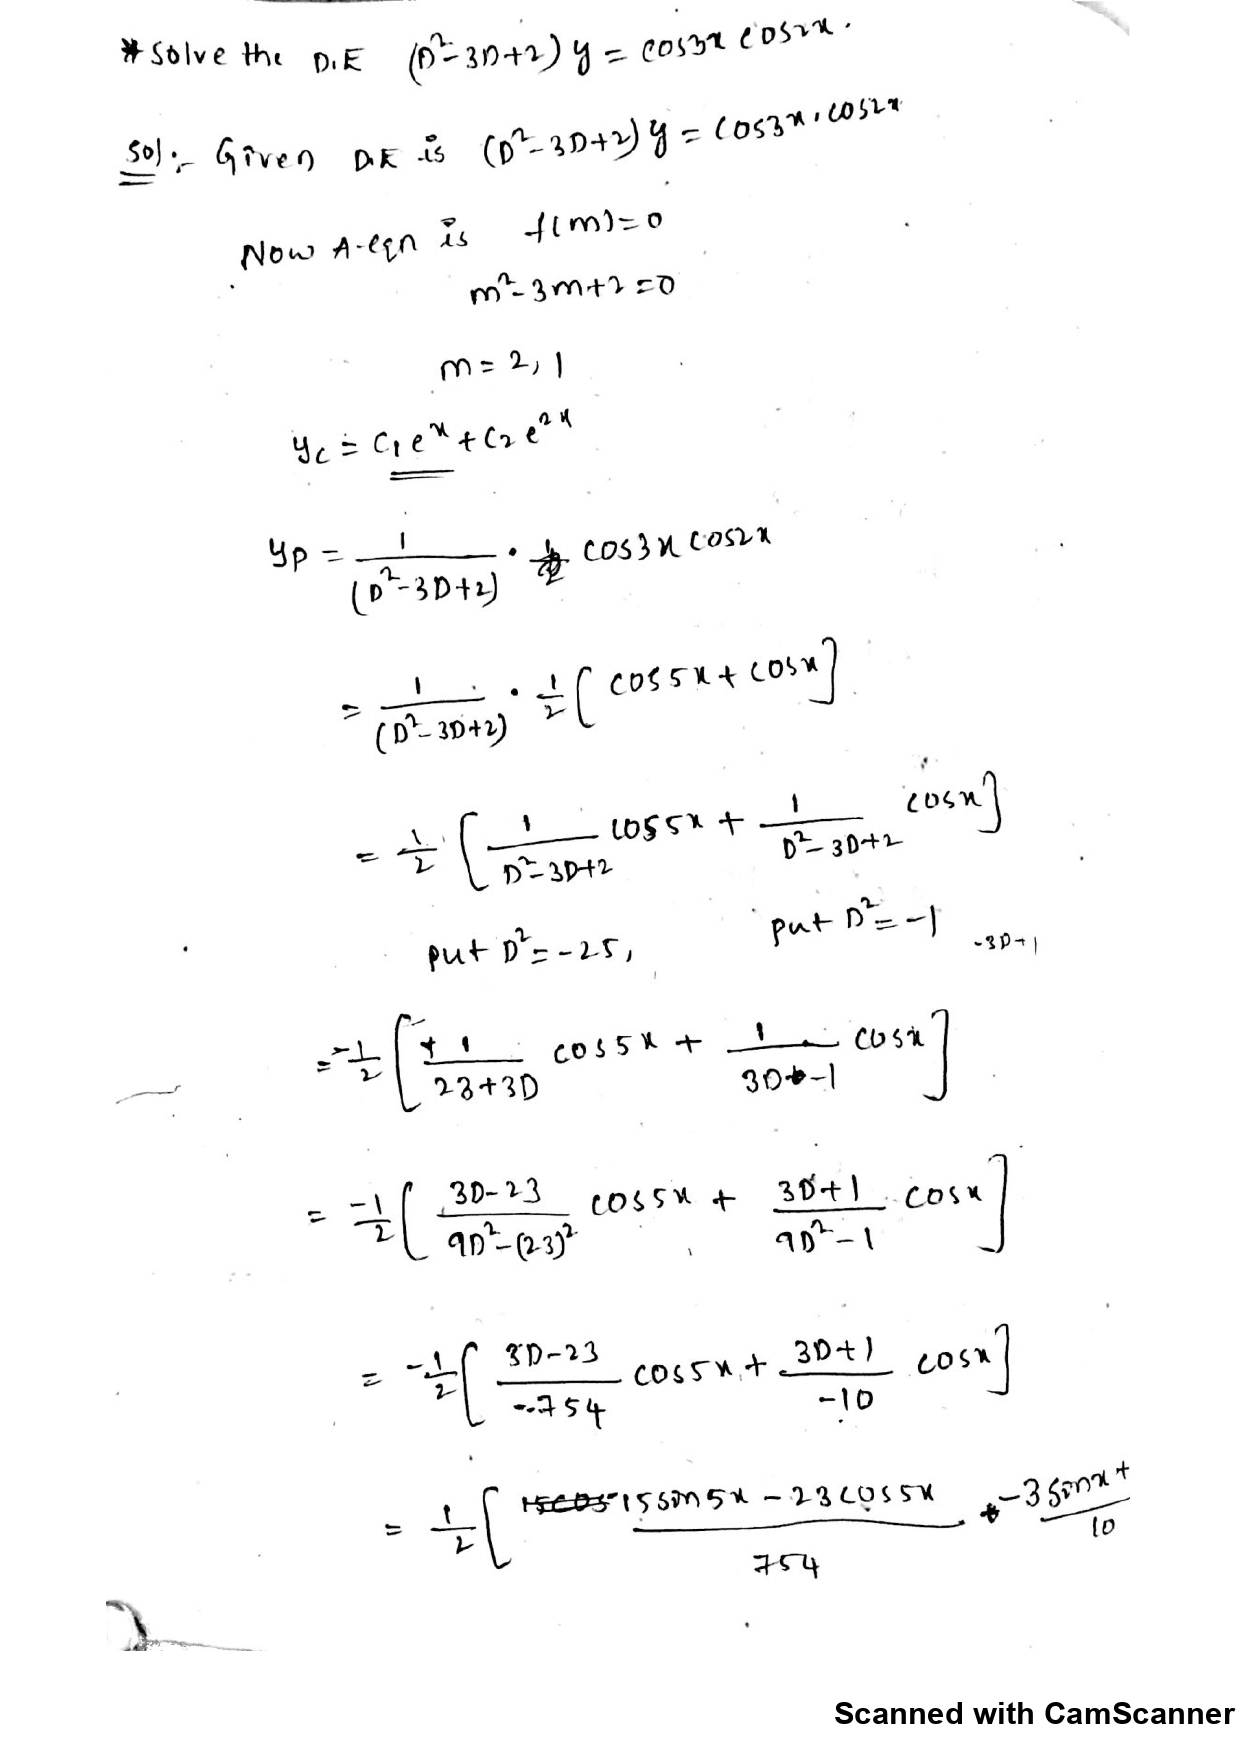 * Solve the D.E (D²-3D+2) y = cos3x cos2x.
Sol:- Given D.E is (D²-3D+2) y = cos3x.cos2x
Now A-eqn is f(m)=0
m²-3m+2=0
m = 2, 1
yc = c₁eˣ + c₂e²ˣ
yp = 1/(D²-3D+2) . cos3x cos2x
= 1/(D²-3D+2) . 1/2 [cos5x + cosx]
= 1/2 [1/(D²-3D+2) cos5x + 1/(D²-3D+2) cosx]
put D² = -25, put D² = -1 -3D+1
= -1/2 [+1/(23+3D) cos5x + 1/(3D-1) cosx]
= -1/2 [(3D-23)/(9D²-(23)²) cos5x + (3D+1)/(9D²-1) cosx]
= -1/2 [(3D-23)/-754 cos5x + (3D+1)/-10 cosx]
= 1/2 [(15sin5x - 23cos5x)/754 + (-3sinx+)/10
Scanned with CamScanner